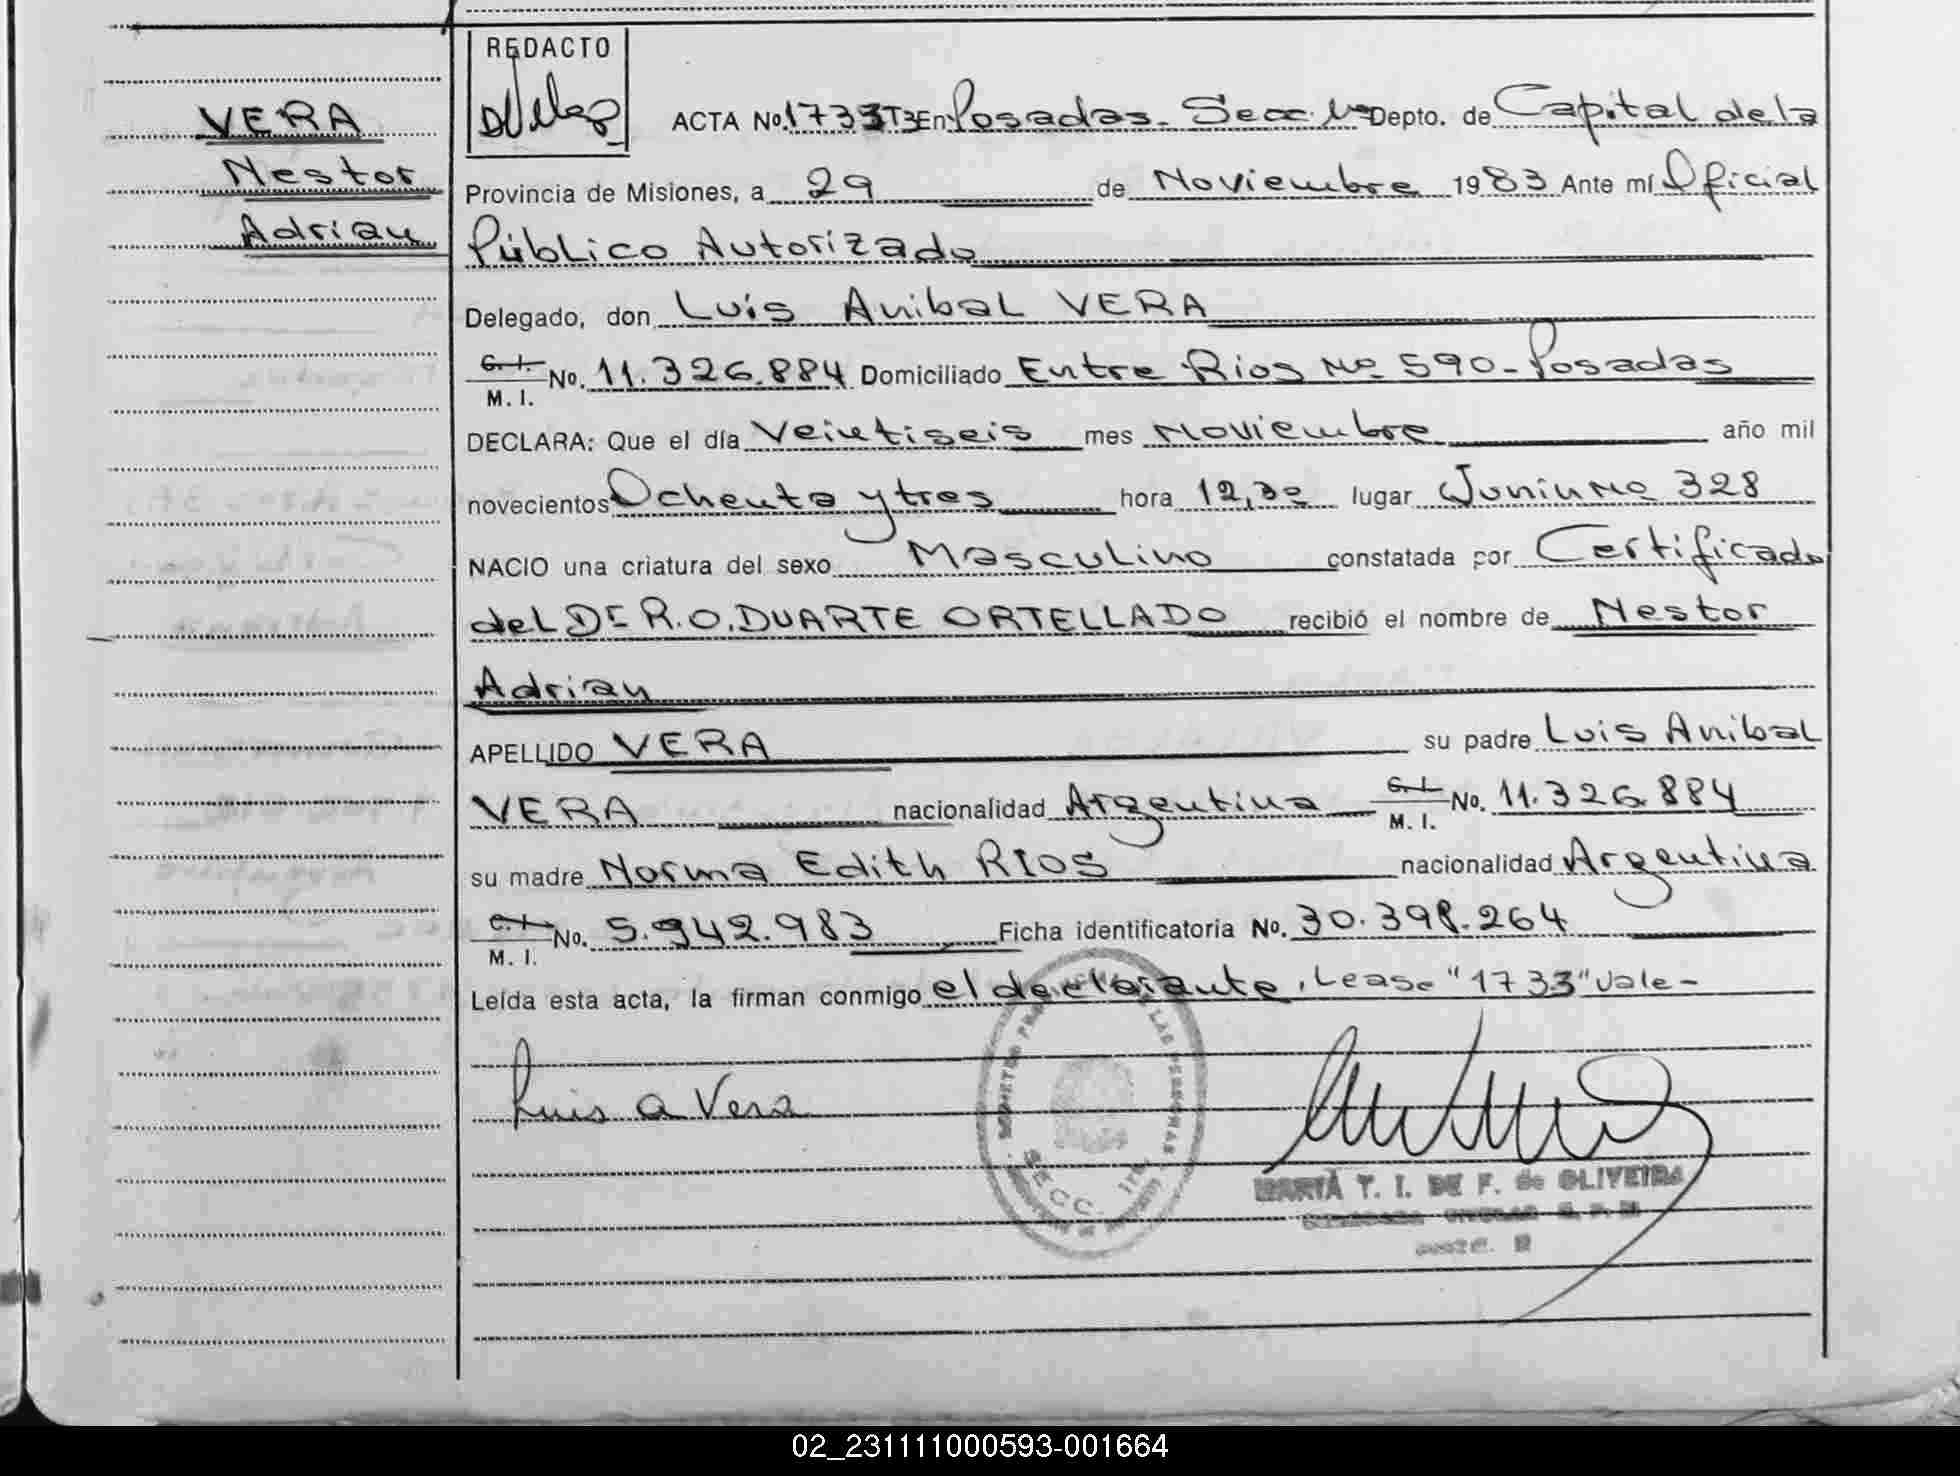 REDACTO
VERA
Nestor
Adrian
ACTA No. 1733 T3 En Posadas - Secc. 1ª Depto. de Capital de la
Provincia de Misiones, a 29 de Noviembre 1983 Ante mí Oficial
Público Autorizado
Delegado, don Luis Anibal VERA
C. I.
M. I. No. 11.326.884 Domiciliado Entre Rios Nº 590 - Posadas
DECLARA: Que el día Veintiseis mes Noviembre año mil
novecientos Ochenta y tres hora 12,30 lugar Junin Nº 328
NACIO una criatura del sexo Masculino constatada por Certificado
del Dr R.O. DUARTE ORTELLADO recibió el nombre de Nestor
Adrian
APELLIDO VERA su padre Luis Anibal
VERA nacionalidad Argentina C. I.
M. I. No. 11.326.884
su madre Norma Edith RIOS nacionalidad Argentina
C. I.
M. I. No. 5.942.983 Ficha identificatoria No. 30.398.264
Leída esta acta, la firman conmigo el declarante. Lease "1733" Vale -
Luis A Vera
LAS PERSONAS
SECC. 1ra.
MARTA T. I. DE F. de OLIVEIRA
02_231111000593-001664